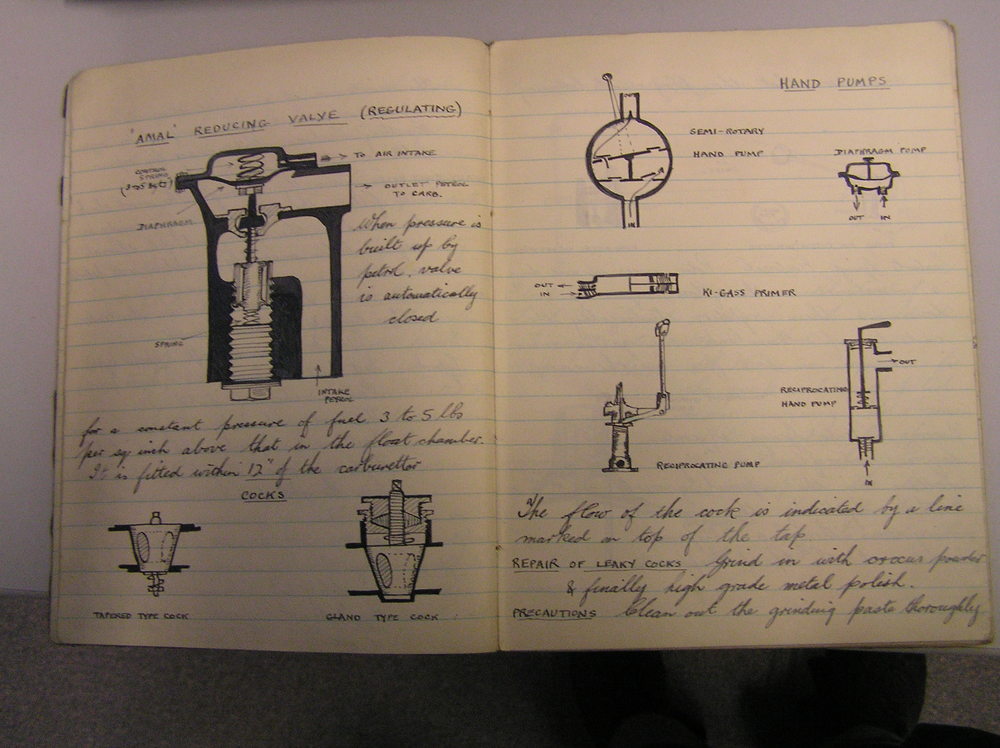 'AMAL' REDUCING VALVE (REGULATING)
CONTROL
SPRING
TO AIR INTAKE
OUTLET PETROL
TO CARB.
DIAPHRAGM
When pressure is
built up by
petrol, valve
is automatically
closed
SPRING
INTAKE
PETROL
for a constant pressure of fuel 3 to 5 lbs
per sq inch above that in the float chamber.
It is fitted within 12" of the carburettor
COCKS
TAPERED TYPE COCK
GLAND TYPE COCK
HAND PUMPS
OUT
SEMI-ROTARY
HAND PUMP
IN
DIAPHRAGM PUMP
OUT IN
OUT
IN
KI-GASS PRIMER
OUT
RECIPROCATING
HAND PUMP
IN
RECIPROCATING PUMP
The flow of the cock is indicated by a line
marked on top of the tap
REPAIR OF LEAKY COCKS Grind in with crocus powder
& finally high grade metal polish.
PRECAUTIONS Clean out the grinding paste thoroughly